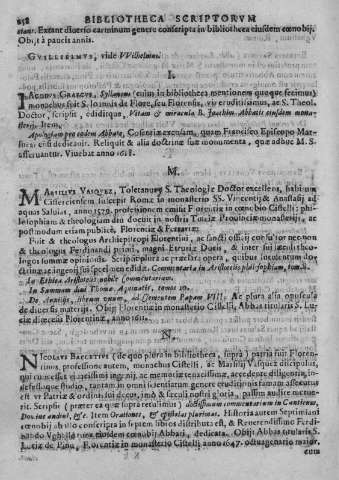 658 BIBLIOTHECA SCRIPTORVM
etani. Extant diuerso carminum genere conscripta in bibliotheca eiusdem cœnobij.
Obijt à paucis annis.
GVILLIELMVS, vide VVilhelmus.
I.
IACOBVS GRAECVS, Syllanus (cuius in bibliotheca mentionem quoque fecimus)
monachus fuit S. Ioannis de Flore, seu Florensis, vir eruditissimus, ac S. Theol.
Doctor, scripsit, ediditque, Vitam & miracula B. Joachim Abbatis eiusdem mona-
sterij. Item,
Apologiam pro eodem Abbate, Cosentiæ exiensam, quam Francisco Episcopo Mar-
turanensi dedicauit. Reliquit & alia doctrinæ suæ monumenta, quæ adhuc M. S.
asseruantur. Viuebat anno 1618.
M.
MARSILIVS VASQVEZ, Toletanus, S. Theologiæ Doctor excellens, habitum
Cisterciensem suscepit Romæ in monasterio SS. Vincentij & Anastasij ad
aquas Saluias, anno 1579. professionem emisit Florentiæ in cœnobio Cistelli; phi-
losophiam & theologiam diu docuit in nostris Tusciæ Prouinciæ monasterijs, ac
postmodum etiam publicè, Florentiæ & Ferrariæ.
Fuit & theologus Archiepiscopi Florentini, ac sancti officij consultor nec non
& theologus Ferdinandi primi, magni Etruriæ Ducis, & inter sui
In Ethica Aristotelis nobile Commentarium.
In Summam diui Thomæ Aquinatis, tomos 10.
De Auxilijs, librum unum, ad Clementem Papam VIII. Ac plura alia opuscula
de diuersis materijs. Obijt Florentiæ in monasterio Cistelli, Abbas titularis S. Lu-
ciæ diœcesis Florentinæ, anno 1611.
N.
NICOLAVS BACCETIVS (de quo plura in bibliotheca, supra) patria fuit Floren-
tinus, professione autem, monachus Cistelli, ac Marsilij Vasquez discipulus,
qui cum esset perspicacissimi ingenij, ac memoriæ tenacissimæ, accedente diligenti, in-
defessoque studio, tantam in omni scientiarum genere eruditionem famam assecutus
est vt Patriæ & ordini sui decus, imò & sæculi nostri gloria, passim audire merue-
rit. Scripsit (præter ea quæ supra retulimus) doctissimum commentarium in Canticum,
& Item Orationes, & epistolas plurimas. Historia autem Septimiani
cœnobij ab illo conscripta in septem libros distributa est, & Reuerendissimo Ferdi-
nando Vghello tunc eiusdem cœnobij Abbati, dedicata. Obijt Abbas titularis S.
Luciæ de Pinu, Florentiæ in monasterio Cistelli anno 1647. octuagenario maior,
cum